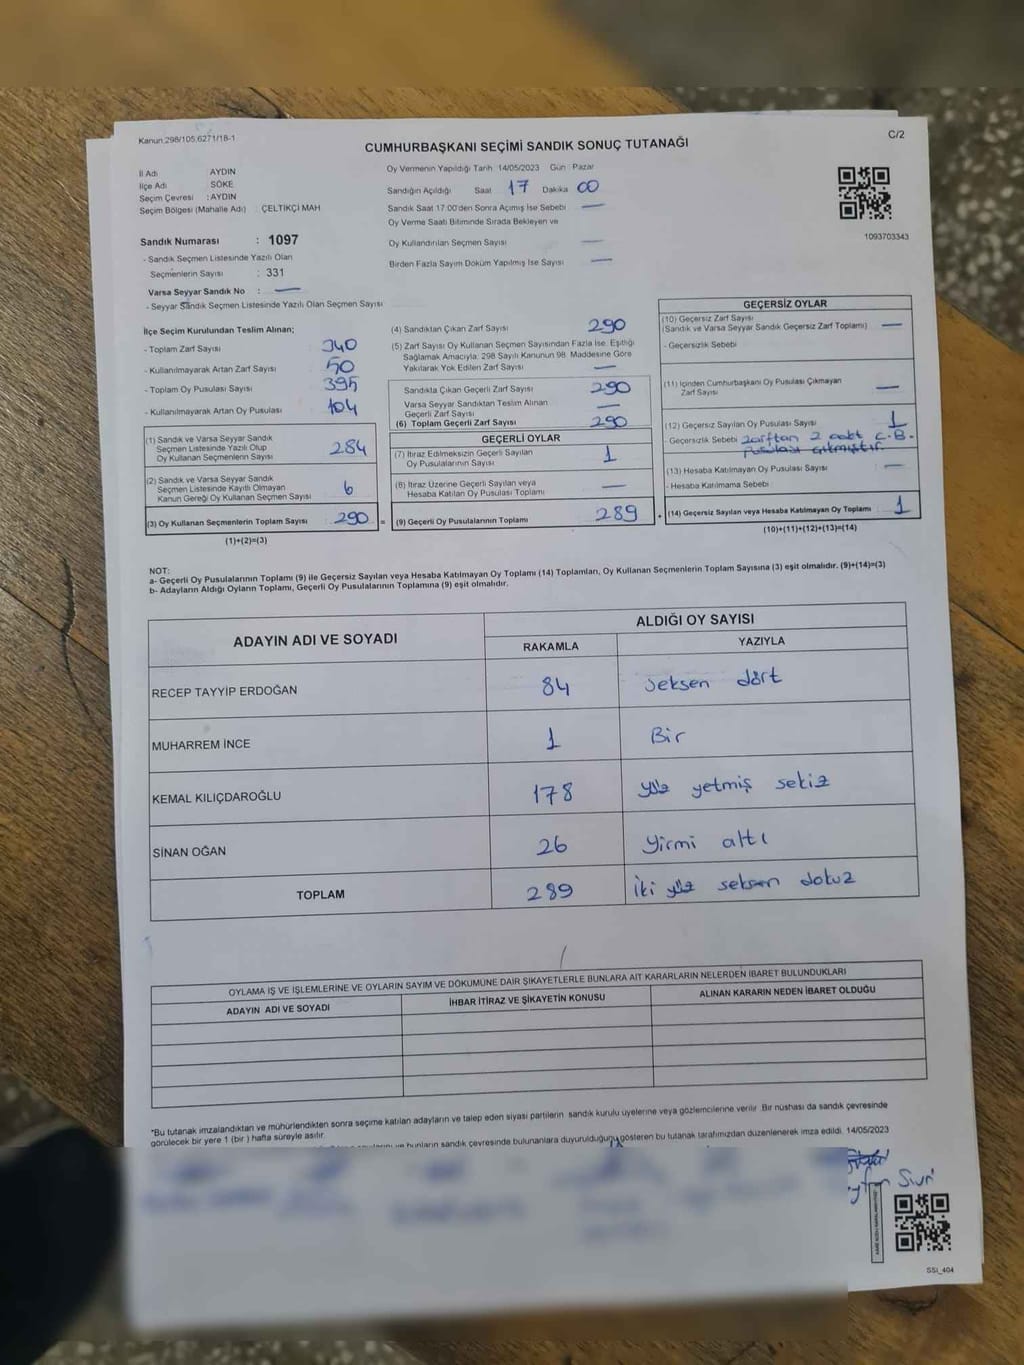 Kanun.298/105.6271/18-1
C/2
CUMHURBAŞKANI SEÇİMİ SANDIK SONUÇ TUTANAĞI
İl Adı AYDIN
İlçe Adı SÖKE
Seçim Çevresi : AYDIN
Seçim Bölgesi (Mahalle Adı) : ÇELTİKÇİ MAH
Sandık Numarası : 1097
- Sandık Seçmen Listesinde Yazılı Olan
Seçmenlerin Sayısı : 331
Varsa Seyyar Sandık No : —
- Seyyar Sandık Seçmen Listesinde Yazılı Olan Seçmen Sayısı
Oy Vermenin Yapıldığı Tarih 14/05/2023 Gün : Pazar
Sandığın Açıldığı Saat 17 Dakika 00
Sandık Saat 17:00'den Sonra Açımış İse Sebebi —
Oy Verme Saati Bitiminde Sırada Bekleyen ve
Oy Kullandırılan Seçmen Sayısı —
Birden Fazla Sayım Döküm Yapılmış İse Sayısı —
1093703343
İlçe Seçim Kurulundan Teslim Alınan;
- Toplam Zarf Sayısı 340
- Kullanılmayarak Artan Zarf Sayısı 50
- Toplam Oy Pusulası Sayısı 395
- Kullanılmayarak Artan Oy Pusulası 104
(1) Sandık ve Varsa Seyyar Sandık
Seçmen Listesinde Yazılı Olup
Oy Kullanan Seçmenlerin Sayısı 284
(2) Sandık ve Varsa Seyyar Sandık
Seçmen Listesinde Kayıtlı Olmayan
Kanun Gereği Oy Kullanan Seçmen Sayısı 6
(3) Oy Kullanan Seçmenlerin Toplam Sayısı 290 =
(1)+(2)=(3)
(4) Sandıktan Çıkan Zarf Sayısı 290
(5) Zarf Sayısı Oy Kullanan Seçmen Sayısından Fazla İse. Eşitliği
Sağlamak Amacıyla; 298 Sayılı Kanunun 98. Maddesine Göre
Yakılarak Yok Edilen Zarf Sayısı —
Sandıkta Çıkan Geçerli Zarf Sayısı 290
Varsa Seyyar Sandıktan Teslim Alınan
Geçerli Zarf Sayısı —
(6) Toplam Geçerli Zarf Sayısı 290
GEÇERLİ OYLAR
(7) İtiraz Edilmeksizin Geçerli Sayılan
Oy Pusulalarının Sayısı 1
(8) İtiraz Üzerine Geçerli Sayılan veya
Hesaba Katılan Oy Pusulası Toplamı —
(9) Geçerli Oy Pusulalarının Toplamı 289 +
GEÇERSİZ OYLAR
(10) Geçersiz Zarf Sayısı
(Sandık ve Varsa Seyyar Sandık Geçersiz Zarf Toplamı) —
- Geçersizlik Sebebi
(11) İçinden Cumhurbaşkanı Oy Pusulası Çıkmayan
Zarf Sayısı —
(12) Geçersiz Sayılan Oy Pusula Sayısı 1
- Geçersizlik Sebebi zarftan 2 adet C.B.
pusulası çıkmıştır.
(13) Hesaba Katılmayan Oy Pusulası Sayısı —
- Hesaba Katılmama Sebebi
(14) Geçersiz Sayılan veya Hesaba Katılmayan Oy Toplamı 1
(10)+(11)+(12)+(13)=(14)
NOT:
a- Geçerli Oy Pusulalarının Toplamı (9) ile Geçersiz Sayılan veya Hesaba Katılmayan Oy Toplamı (14) Toplamları, Oy Kullanan Seçmenlerin Toplam Sayısına (3) eşit olmalıdır. (9)+(14)=(3)
b- Adayların Aldığı Oyların Toplamı, Geçerli Oy Pusulalarının Toplamına (9) eşit olmalıdır.
ADAYIN ADI VE SOYADI
ALDIĞI OY SAYISI
RAKAMLA YAZIYLA
RECEP TAYYİP ERDOĞAN 84 seksen dört
MUHARREM İNCE 1 Bir
KEMAL KILIÇDAROĞLU 178 yüz yetmiş sekiz
SİNAN OĞAN 26 Yirmi altı
TOPLAM 289 İki yüz seksen dokuz
OYLAMA İŞ VE İŞLEMLERİNE VE OYLARIN SAYIM VE DÖKÜMÜNE DAİR ŞİKAYETLERLE BUNLARA AİT KARARLARIN NELERDEN İBARET BULUNDUKLARI
ADAYIN ADI VE SOYADI İHBAR İTİRAZ VE ŞİKAYETİN KONUSU ALINAN KARARIN NEDEN İBARET OLDUĞU
*Bu tutanak imzalandıktan ve mühürlendikten sonra seçime katılan adayların ve talep eden siyasi partilerin sandık kurulu üyelerine veya gözlemcilerine verilir. Bir nüshası da sandık çevresinde
görülecek bir yere 1 (bir) hafta süreyle asılır.
bunların sandık çevresinde bulunanlara duyurulduğunu gösteren bu tutanak tarafımızdan düzenlenerek imza edildi. 14/05/2023
SSI_404